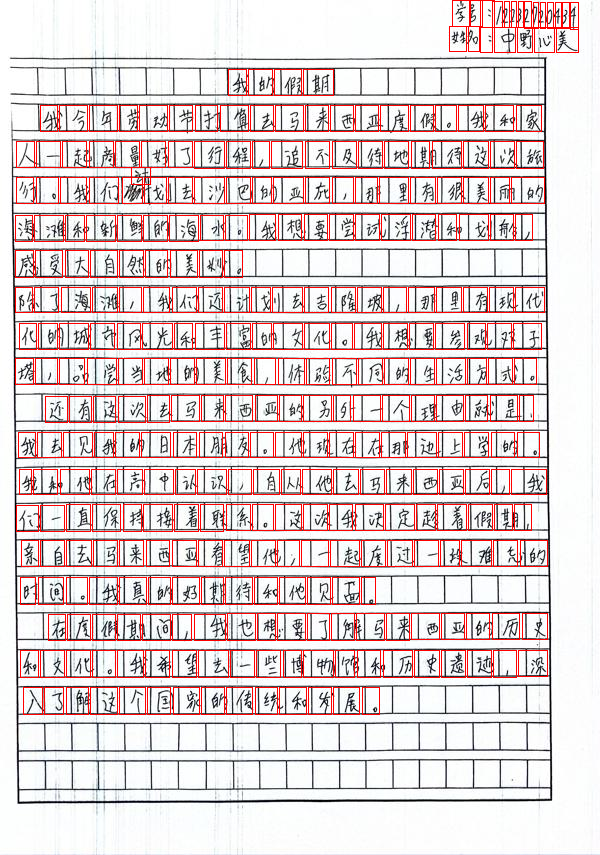 学号:1223270434
姓名:中野心美
我的假期
我今年劳动节打算去马来西亚度假。我和家
人一起商量好了行程,追不及待地期待这次旅
行。我们计划去沙巴的亚庇,那里有很美丽的
海滩和新鲜的海水。我想要尝试浮潜和划船,
感受大自然的美妙。
除了海滩,我们还计划去吉隆坡,那里有现代
化的城市风光和丰富的文化。我想要参观双子
塔,品尝当地的美食,体验不同的生活方式。
还有这次去马来西亚的另外一个理由就是,
我去见我的日本朋友。他现在在那边上学的。
我和他在高中认识,自从他去马来西亚后,我
们一直保持接着联系。这次我决定趁着假期,
亲自去马来西亚看望他,一起度过一段难忘的
时间。我真的好期待和他见面。
在度假期间,我也想要了解马来西亚的历史
和文化。我希望去一些博物馆和历史遗迹,深
入了解这个国家的传统和发展。